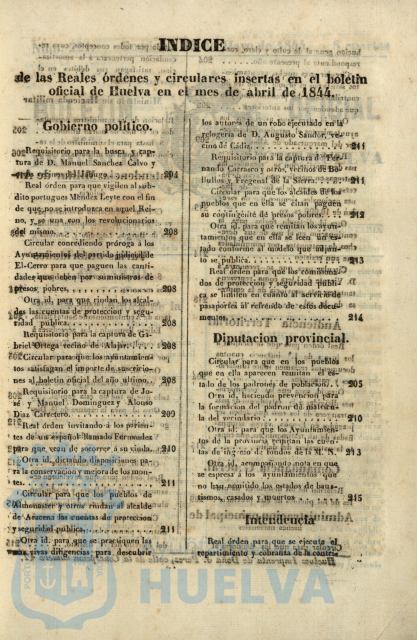 INDICE
de las Reales órdenes y circulares insertas en el boletin
oficial de Huelva en el mes de abril de 1844.
Gobierno político.
Requisitorio para la busca y cap-
tura de D. Manuel Sanchez Calvo y
204
Real órden para que vigilen al súb-
dito portugues Méndez Leyte con el fin
de que no se introduzca en aquel Rei-
no, y se una con los revolucionarios
del mismo. 208
Circular concediendo próroga á los
Ayuntamientos del partido judicial de
El-Cerro para que paguen las canti-
dades que deben por suministros de
presos pobres. 208
Otra id. para que rindan los alcal-
des las cuentas de proteccion y segu-
ridad pública. 208
Requisitorio para la captura de Ga-
briel Ortega vecino de Alajar. 208
Circular para que los ayuntamien-
tos satisfagan el importe de suscricio-
nes al boletin oficial del año último. 208
Requisitorio para la captura de Jo-
sé y Manuel Dominguez y Alonso
Diaz Carretero. 209
Real órden invitando á los parien-
tes de un español llamado Fernandez
para que vean de socorrer á su viuda. 210
Otra id. dictando disposiciones pa-
ra la conservacion y mejora de los mon-
tes. 211
Circular para que los pueblos de
Almonaster y otros rindan al alcalde
de Aracena las cuentas de proteccion
y seguridad pública. 211
Otra id. para que se practiquen las
mas vivas diligencias para descubrir
los autores de un robo ejecutado en la
relogeria de D. Augusto Sandor, ve-
cino de Cádiz. 211
Requisitorio para la captura de Fer-
nando Carrasco y otros, vecinos de Bo-
llullos y Fregenal de la Sierra. 211
Circular para que los alcaldes de los
pueblos que en ella se citan paguen
su contingente de presos pobres. 212
Otra id. para que remitan los ayun-
tamientos que en ella se leen un es-
tado conforme al modelo que adjun-
to se publica. 213
Real órden para que los comisiona-
dos de proteccion y seguridad públi-
ca se limiten en cuanto al servicio de
pasaportes al refrendo de estos docu-
mentos. 214
Diputacion provincial.
Circular para que en los pueblos
que en ella aparecen remitan el es-
tado de los padrones de poblacion. 205
Otra id. haciendo prevencion para
la formacion del padron de matrícu-
la del vecindario. 210
Otra id. para que los Ayuntamien-
tos de la provincia remitan las cuen-
tas de ingreso de fondos de la M. N. 213
Otra id. acompañando nota en que
se espresa á los ayuntamientos que
no han remitido los estados de bau-
tismos, casados y muertos. 215
Intendencia
Real órden para que se ejecute el
repartimiento y cobranza de la contri-
HUELVA